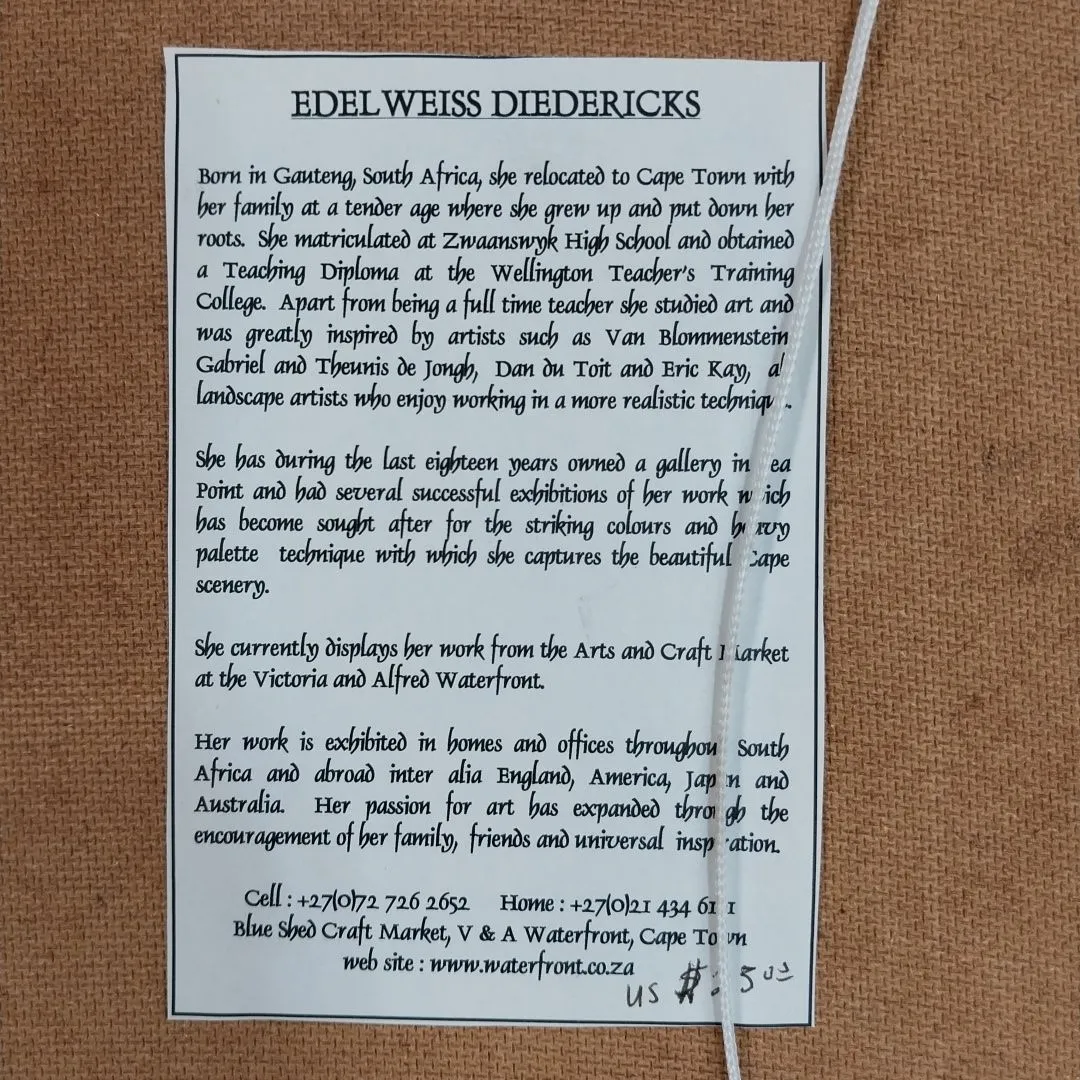 EDELWEISS DIEDERICKS
Born in Gauteng, South Africa, she relocated to Cape Town with
her family at a tender age where she grew up and put down her
roots. She matriculated at Zwaanswyk High School and obtained
a Teaching Diploma at the Wellington Teacher's Training
College. Apart from being a full time teacher she studied art and
was greatly inspired by artists such as Van Blommenstein
Gabriel and Theunis de Jongh, Dan du Toit and Eric Kay, al
landscape artists who enjoy working in a more realistic techniqu.
She has during the last eighteen years owned a gallery in ea
Point and had several successful exhibitions of her work which
has become sought after for the striking colours and heavy
palette technique with which she captures the beautiful Cape
scenery.
She currently displays her work from the Arts and Craft Market
at the Victoria and Alfred Waterfront.
Her work is exhibited in homes and offices throughout South
Africa and abroad inter alia England, America, Japan and
Australia. Her passion for art has expanded through the
encouragement of her family, friends and universal inspiration.
Cell : +27(0)72 726 2652 Home : +27(0)21 434
Blue Shed Craft Market, V & A Waterfront, Cape Town
web site : www.waterfront.co.za
US $: 5